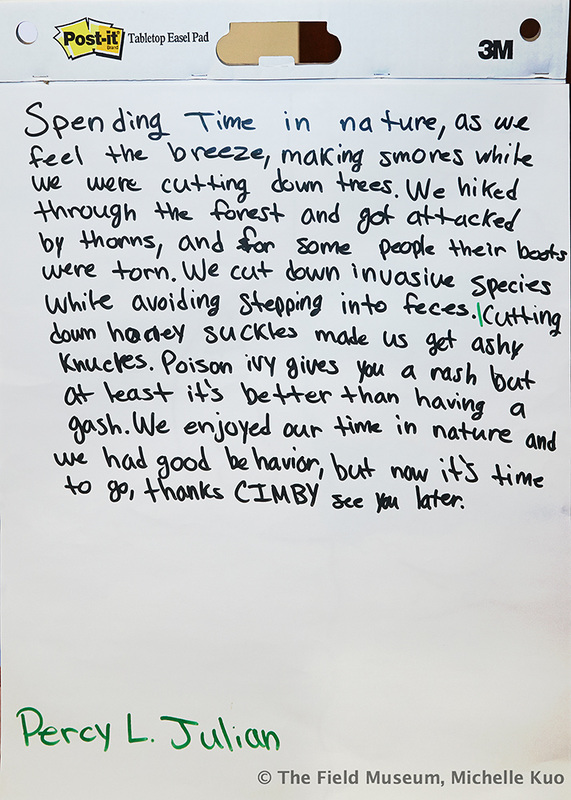 Post-it
brand
Tabletop Easel Pad
3M
Spending Time in nature, as we
feel the breeze, making smores while
we were cutting down trees. We hiked
through the forest and got attacked
by thorns, and for some people their boots
were torn. We cut down invasive species
while avoiding stepping into feces. Cutting
down honey suckles made us get ashy
knuckles. Poison ivy gives you a rash but
at least it's better than having a
gash. We enjoyed our time in nature and
we had good behavior, but now it's time
to go, thanks CIMBY see you later.
Percy L. Julian
© The Field Museum, Michelle Kuo